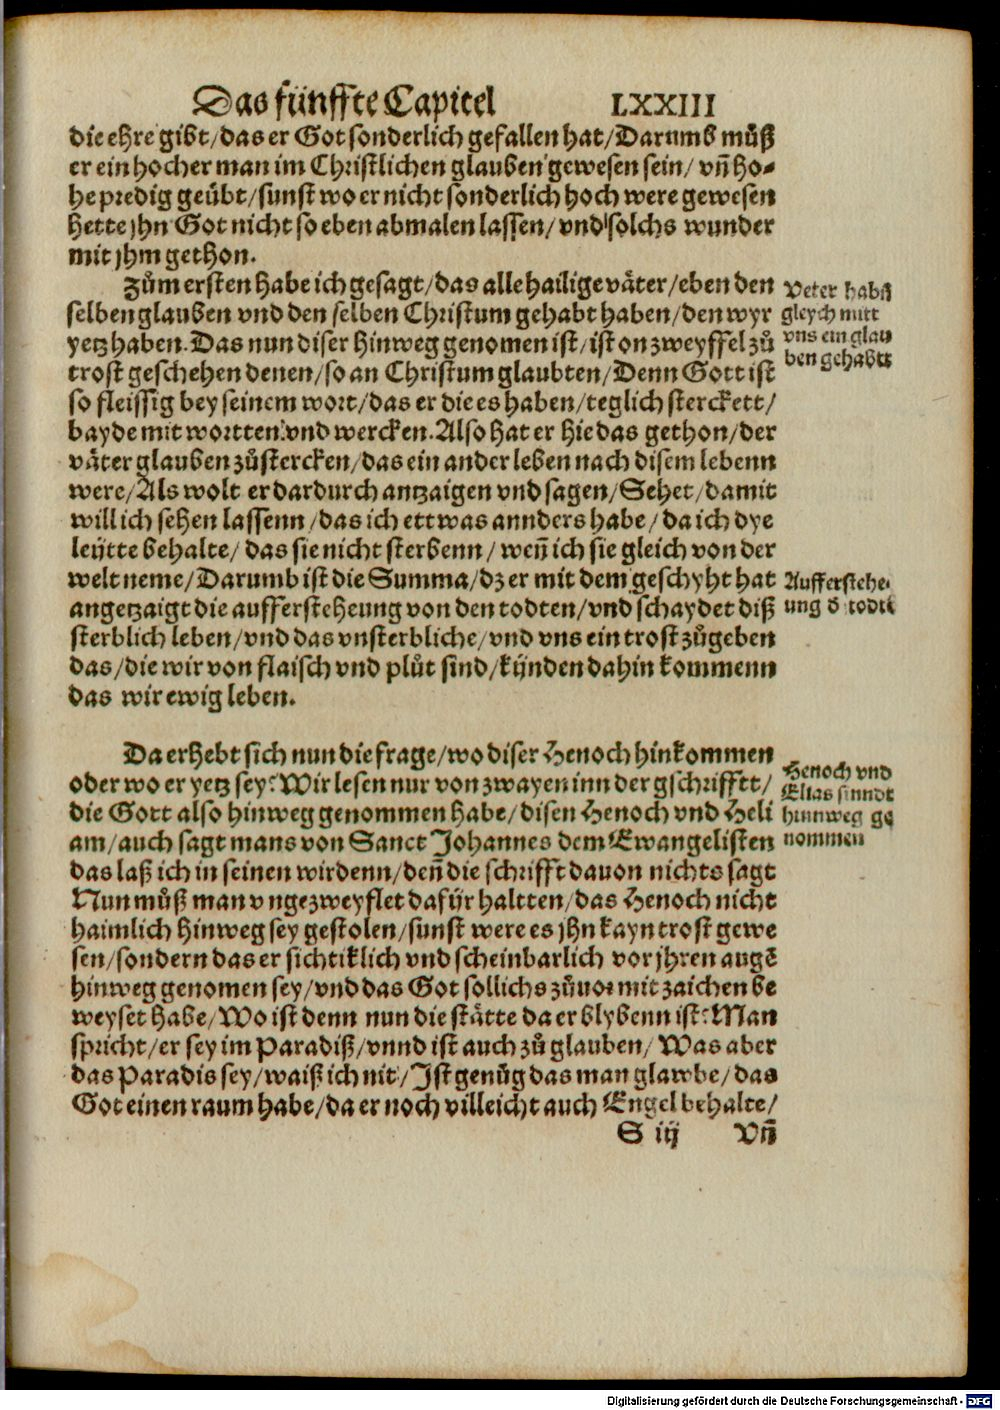 Das fünffte Capitel LXXIII
die ehre gibt/das er Got sonderlich gefallen hat/Darumb můß
er ein hocher man im Christlichen glauben gewesen sein/ vn̄ ho-
he predig geübt/sunst wo er nicht sonderlich hoch were gewesen
hette jhn Got nicht so eben abmalen lassen/ vnd solchs wunder
mit jhm gethon.
Zům ersten habe ich gesagt/das alle hailige väter/eben den
selben glauben vnd den selben Christum gehabt haben/den wyr
yetz haben. Das nun diser hinweg genomen ist/ist on zweyffel zů
trost geschehen denen/so an Christum glaubten/Denn Gott ist
so fleissig bey seinem wort/das er die es haben/teglich sterckett/
bayde mit wortten vnd wercken. Also hat er hie das gethon/der
väter glauben zůstercken/das ein ander leben nach disem lebenn
were/Als wolt er dardurch antzaigen vnd sagen/Sehet/damit
will ich sehen lassenn/das ich ettwas annders habe/da ich dye
leütte behalte/ das sie nicht sterbenn/ wen̄ ich sie gleich von der
welt neme/Darumb ist die Summa/dz er mit dem geschyht hat
angetzaigt die auffersteheung von den todten/vnd schaydet diß
sterblich leben/vnd das vnsterbliche/vnd vns ein trost zůgeben
das/die wir von flaisch vnd plůt sind/kÿnden dahin kommenn
das wir ewig leben.
Veter habn̄
gleych mitt
vns ein glau
ben gehabtt
Aufferstehe-
ung d̄ todtē
Da erhebt sich nun die frage/wo diser Henoch hinkommen
oder wo er yetz sey? Wir lesen nur von zwayen inn der gschrifftt/
die Gott also hinweg genommen habe/disen Henoch vnd Heli
am/auch sagt mans von Sanct Johannes dem Ewangelisten
das laß ich in seinen wirdenn/den̄ die schrifft dauon nichts sagt
Nun můß man vngezweyflet dafÿr haltten/das Henoch nicht
haimlich hinweg sey gestolen/sunst were es jhn kayn trost gewe
sen/sondern das er sichtiklich vnd scheinbarlich vor jhren augē
hinweg genomen sey/vnd das Got sollichs zůuor mit zaichen be
weyset habe/Wo ist denn nun die stätte da er blybenn ist? Man
spricht/er sey im Paradiß/vnnd ist auch zů glauben/ Was aber
das Paradis sey/waiß ich nit/Jst genůg das man glawbe/das
Got einen raum habe/da er noch villeicht auch Engel behalte/
Henoch vnd
Elias sinndt
hinnweg ge
nommen
S iij Vn̄
Digitalisierung gefördert durch die Deutsche Forschungsgemeinschaft - DFG